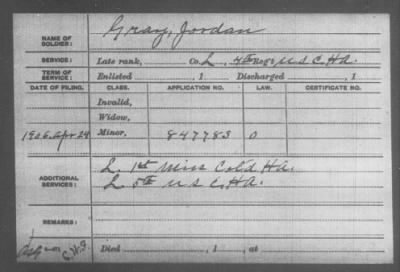 NAME OF SOLDIER: Gray, Jordan
SERVICE: Late rank, Co. L, 4th Reg't U S C. HA.
TERM OF SERVICE: Enlisted , 1 Discharged , 1
DATE OF FILING. CLASS. APPLICATION NO. LAW. CERTIFICATE NO.
Invalid,
Widow,
1906 Apr 24 Minor, 847783 0
ADDITIONAL SERVICES: L. 1st Miss Cold HA.
L 5th U S C. HA.
REMARKS:
Died , 1 , at